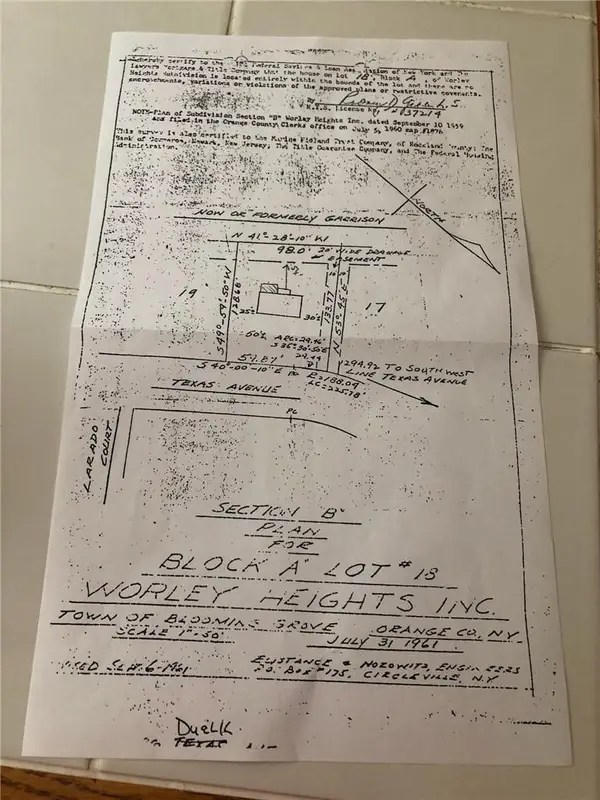 hereby certify to the Federal Savings & Loan Association of New York and the
Lawyers Mortgage & Title Company that the house on Lot 18, Block A, of Worley
Heights Subdivision is located entirely within the bounds of the lot and there are no
encroachments, variations or violations of the approved plans or restrictive covenants.
By
N.Y.S. License No. 37214
NOTE-Plan of Subdivision Section "B" Worley Heights Inc. dated September 10 1959
and filed in the Orange County Clerks office on July 5, 1960 map #1876
This survey is also certified to the Marine Midland Trust Company, of Rockland County; The
Bank of Commerce, Newark, New Jersey; The Title Guarantee Company, and The Federal Housing
Administration.
NORTH
NOW OR FORMERLY GARRISON
N 41°-28'-10" W
98.0' 20' WIDE DRAINAGE
EASEMENT
19
S 49°-59'-50" W
128.68'
25'±
30'±
133.77'
N 53°-45' E
17
60'±
ARC=29.46'
S 35°-30'-50" E
29.44
59.87'
S 40°-00'-10" E
PC
R=188.04
LC=225.78'
294.92 TO SOUTHWEST
LINE TEXAS AVENUE
TEXAS AVENUE
PC
LARADO
COURT
SECTION "B"
PLAN
FOR
BLOCK "A" LOT #18
WORLEY HEIGHTS INC.
TOWN OF BLOOMING GROVE ORANGE CO., N.Y.
SCALE 1"=50' JULY 31 1961
EUSTANCE & HOROWITZ, ENGINEERS
P.O. BOX #175, CIRCLEVILLE, N.Y.
TEXAS